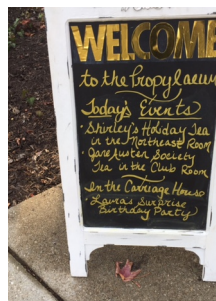 WELCOME
to the Propylaeum
Today's Events
· Shirley's Holiday Tea
in the Northeast Room
· Jane Austen Society
Tea in the Club Room
In the Carriage House
· Laura's Surprise
Birthday Party